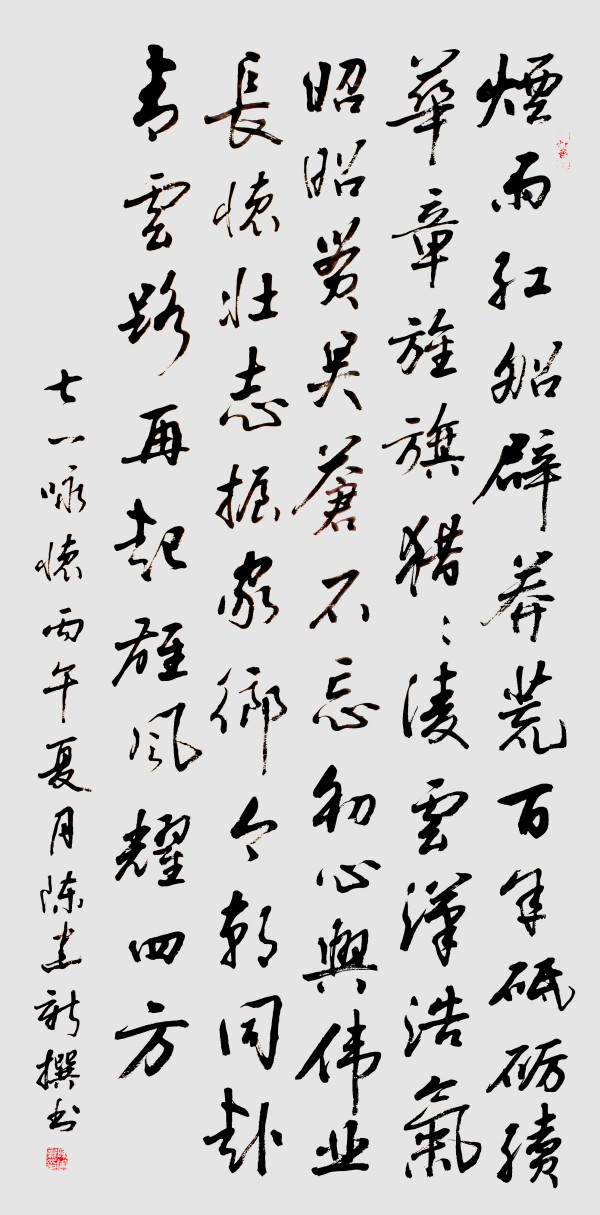 煙雨紅船辟莽荒百年砥砺續
華章旌旗猎〻凌雲漢浩氣
昭昭贯昊蒼不忘初心興伟业
長懷壮志振家鄉今朝同赴
青雲路再起雄風耀四方
七一咏懷丙午夏月陈建新撰书